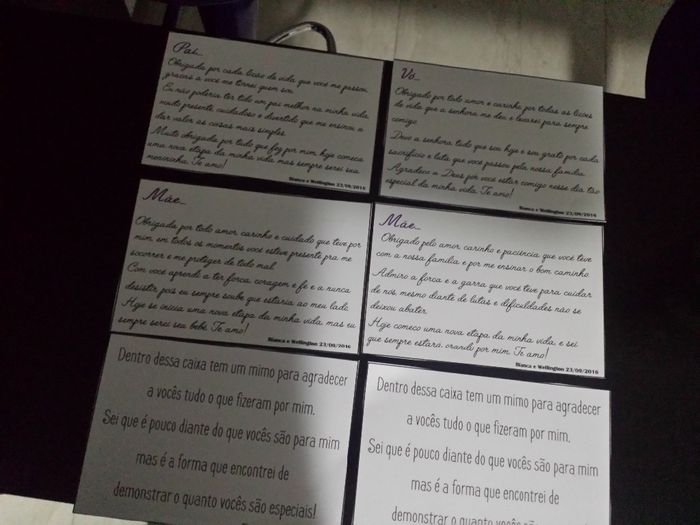 Pai...
Obrigada por cada lição de vida que você me passou,
graças a você me tornei quem sou.
Eu não poderia ter tido um pai melhor na minha vida,
muito presente, cuidadoso e divertido que me ensinou a
dar valor as coisas mais simples.
Muito obrigada por tudo que fez por mim, hoje começa
uma nova etapa da minha vida mas sempre serei sua
menininha. Te amo!
Bianca e Wellington 23/09/2016
Vó...
Obrigado por todo amor e carinho, por todas as lições
de vida que a senhora me deu e levarei para sempre
comigo.
Devo a senhora tudo que sou hoje e sou grato por cada
sacrifício e luta que você passou pela nossa família.
Agradeço a Deus por você estar comigo nesse dia tão
especial da minha vida. Te amo!
Bianca e Wellington 23/09/2016
Mãe...
Obrigada por todo amor, carinho e cuidado que teve por
mim, em todos os momentos você esteve presente pra me
socorrer e me proteger de todo mal.
Com você aprendi a ter força, coragem e fé e a nunca
desistir, pois eu sempre soube que estaria ao meu lado.
Hoje se inicia uma nova etapa da minha vida, mas eu
sempre serei seu bebê. Te amo!
Bianca e Wellington 23/09/2016
Mãe...
Obrigado pelo amor, carinho e paciência que você teve
com a nossa família e por me ensinar o bom caminho.
Admiro a força e a garra que você teve para cuidar
de nós, mesmo diante de lutas e dificuldades não se
deixou abater.
Hoje começo uma nova etapa da minha vida, e sei
que sempre estará orando por mim. Te amo!
Bianca e Wellington 23/09/2016
Dentro dessa caixa tem um mimo para agradecer
a vocês tudo o que fizeram por mim.
Sei que é pouco diante do que vocês são para mim
mas é a forma que encontrei de
demonstrar o quanto vocês são especiais!
Dentro dessa caixa tem um mimo para agradecer
a vocês tudo o que fizeram por mim.
Sei que é pouco diante do que vocês são para mim
mas é a forma que encontrei de
demonstrar o quanto vocês são especiais!